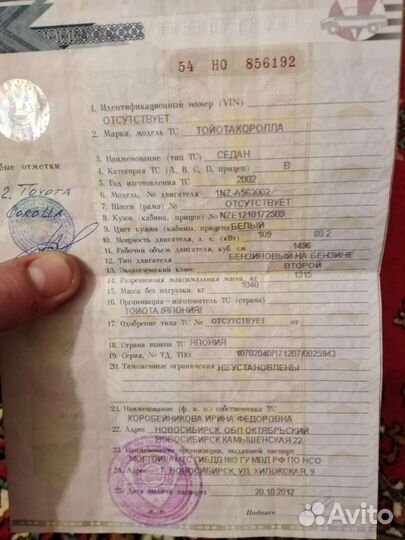 54 НО 856192
1. Идентификационный номер (VIN)
ОТСУТСТВУЕТ
2. Марка, модель ТС ТОЙОТАКОРОЛЛА
3. Наименование (тип ТС) СЕДАН
4. Категория ТС (А, В, С, D, прицеп) В
5. Год изготовления ТС 2002
6. Модель, № двигателя 1NZ-A563002
7. Шасси (рама) № ОТСУТСТВУЕТ
8. Кузов (кабина, прицеп) № NZE1210172509
9. Цвет кузова (кабины, прицепа) БЕЛЫЙ
10. Мощность двигателя, л. с. (кВт) 109 80.2
11. Рабочий объем двигателя, куб. см 1496
12. Тип двигателя БЕНЗИНОВЫЙ НА БЕНЗИНЕ
13. Экологический класс ВТОРОЙ
14. Разрешенная максимальная масса, кг 1315
15. Масса без нагрузки, кг 1040
16. Организация – изготовитель ТС (страна)
ТОЙОТА /ЯПОНИЯ/
17. Одобрение типа ТС № ОТСУТСТВУЕТ от
18. Страна вывоза ТС ЯПОНИЯ
19. Серия, № ТД, ТПО 10702040/171207/0025943
20. Таможенные ограничения НЕ УСТАНОВЛЕНЫ
21. Наименование (ф. и. о.) собственника ТС
КОРОБЕЙНИКОВА ИРИНА ФЕДОРОВНА
22. Адрес НОВОСИБИРСК, ОБЛ ОКТЯБРЬСКИЙ,
НОВОСИБИРСК КАМЫШЕНСКАЯ 22
23. Наименование организации, выдавшей паспорт
МОТОТРИАМТС ГИБДД №3 ГУ МВД РФ ПО НСО
24. Адрес Г. НОВОСИБИРСК, УЛ. ХИЛОКСКАЯ, 9
25. Дата выдачи паспорта 20.10.2012
М. П. Подпись
бые отметки
2. Toyota
Corolla
Avito